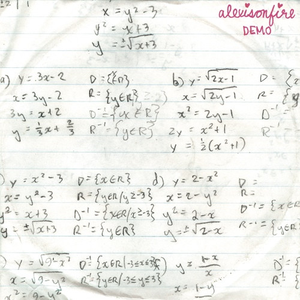 x = y²-3
alexisonfire
y² = x+3
DEMO
y = ±√x+3
a) y = 3x-2 D = {x∈R}
x = 3y-2 R = {y∈R}
3y = x+2 D⁻¹ = {x∈R}
y = ⅓x + ⅔ R⁻¹ = {y∈R}
b) y = √2x-1 D = {x
x = √2y-1 R = {y
x² = 2y-1
2y = x²+1
y = ½(x²+1)
) y = x²-3 D = {x∈R}
x = y²-3 R = {y∈R|y≥-3}
y² = x+3 D⁻¹ = {x∈R|x≥-3}
y = ±√x+3 R⁻¹ = {y∈R}
d) y = 2-x² D =
x = 2-y² R =
y² = 2-x D⁻¹ = {x
y = ±√2-x R⁻¹ = {y
) y = √9-x² D = {x∈R|-3≤x≤3}
x = √9-y² R = {y∈R|
x² = 9-y²
y = 1-x
x = 1-y